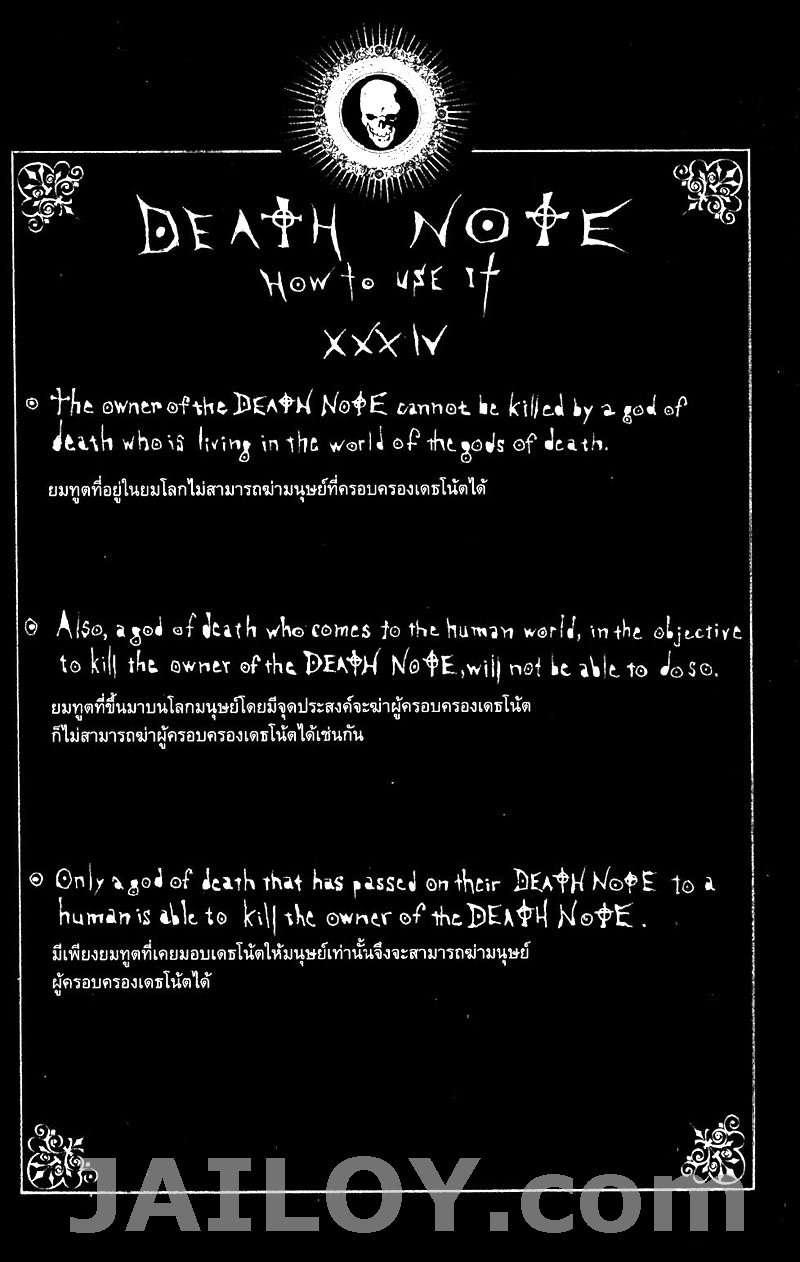 DEATH NOTE
HOW to USE It
XXXIV
The owner of the DEATH NOTE cannot be killed by a god of
death who is living in the world of the gods of death.
ยมทูตที่อยู่ในยมโลกไม่สามารถฆ่ามนุษย์ที่ครอบครองเดธโน้ตได้
Also, a god of death who comes to the human world, in the objective
to kill the owner of the DEATH NOTE, will not be able to do so.
ยมทูตที่ขึ้นมาบนโลกมนุษย์โดยมีจุดประสงค์จะฆ่าผู้ครอบครองเดธโน้ต
ก็ไม่สามารถฆ่าผู้ครอบครองเดธโน้ตได้เช่นกัน
Only a god of death that has passed on their DEATH NOTE to a
human is able to kill the owner of the DEATH NOTE.
มีเพียงยมทูตที่เคยมอบเดธโน้ตให้มนุษย์เท่านั้นจึงจะสามารถฆ่ามนุษย์
ผู้ครอบครองเดธโน้ตได้
JAILOY.com